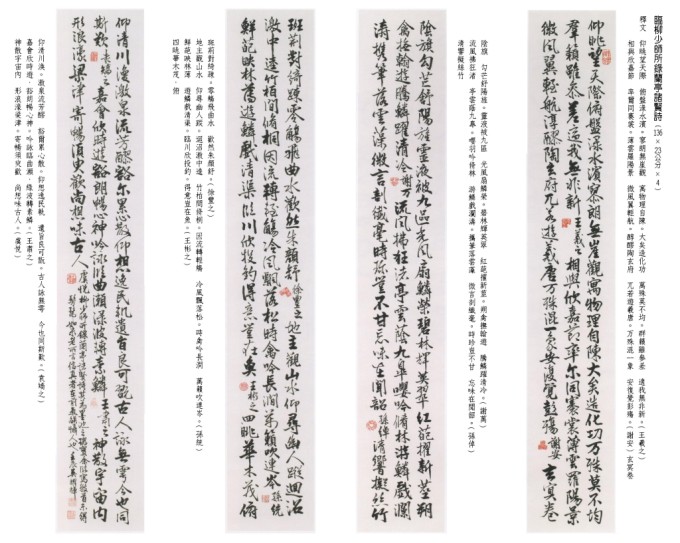 臨柳少師所錄蘭亭諸賢詩(136×23公分×4)
釋文 仰眺望天際 俯盤淥水濱。寥朗無崖觀 寓物理自陳。大矣造化功 萬殊莫不均。群籟雖參差 適我無非新。(王羲之)
相與欣嘉節 率爾同褰裳。薄雲羅陽景 微風翼輕航。醇醪陶玄府 兀若遊羲唐。萬殊混一象 安復覺彭殤。(謝安)玄冥卷
仰眺望天際俯盤淥水濱寥朗無崖觀寓物理自陳大矣造化功萬殊莫不均
群籟雖參差適我無非新王羲之相與欣嘉節率爾同褰裳薄雲羅陽景
微風翼輕航醇醪陶玄府兀若遊羲唐萬殊混一象安復覺彭殤謝安玄冥卷
陰旗 句芒舒陽旌。靈液被九區 光風扇鱗榮。碧林輝英翠 紅葩擢新莖。翔禽撫翰遊 騰鱗躍清泠。(謝萬)
流風拂枉渚 亭雲蔭九皋。嚶羽吟脩林 游鱗戲瀾濤。攜筆落雲藻 微言剖纖毫。時珍豈不甘 忘味在聞韶。(孫綽)
清響擬絲竹
陰旗句芒舒陽旌靈液被九區光風扇鱗榮碧林輝英翠紅葩擢新莖翔
禽撫翰遊騰鱗躍清泠謝萬流風拂枉渚亭雲蔭九皋嚶吟脩林游鱗戲瀾
濤攜筆落雲藻微言剖纖毫時珍豈不甘忘味在聞韶孫綽清響擬絲竹
班荊對綺疏。零觴飛曲水 歡然朱顏舒。(徐豐之)
地主觀山水 仰尋幽人蹤。迴沼激中逵 竹柏間脩桐。因流轉輕觴 冷風飄落松。時禽吟長澗 萬籟吹連岑。(孫統)
鮮葩映林薄 遊鱗戲清渠。臨川欣投釣。得意豈在魚。(王彬之)
四眺華木茂 俯
班荊對綺疏零觴飛曲水歡然朱顏舒徐豐之地主觀山水仰尋幽人蹤迴沼
激中逵竹柏間脩桐因流轉輕觴冷風飄落松時禽吟長澗萬籟吹連岑孫統
鮮葩映林薄遊鱗戲清渠臨川欣投釣得意豈在魚王彬之四眺華木茂俯
仰清川渙。激泉流芳醪 豁爾累心散。仰想逸民軌 遺音良可翫。古人詠舞雩 今也同斯歎。(袁嶠之)
嘉會欣時遊 豁朗暢心神。吟詠曲水瀨 淥波轉素鱗。(王肅之)
神散宇宙內 形浪濠梁津。寄暢須臾歡 尚想味古人。(虞說)
仰清川渙激泉流芳醪豁爾累心散仰想逸民軌遺音良可翫古人詠舞雩今也同
斯歎袁嶠之嘉會欣時遊豁朗暢心神吟詠曲水瀨淥波轉素鱗王肅之神散宇宙內
形浪濠梁津寄暢須臾歡尚想味古人虞說